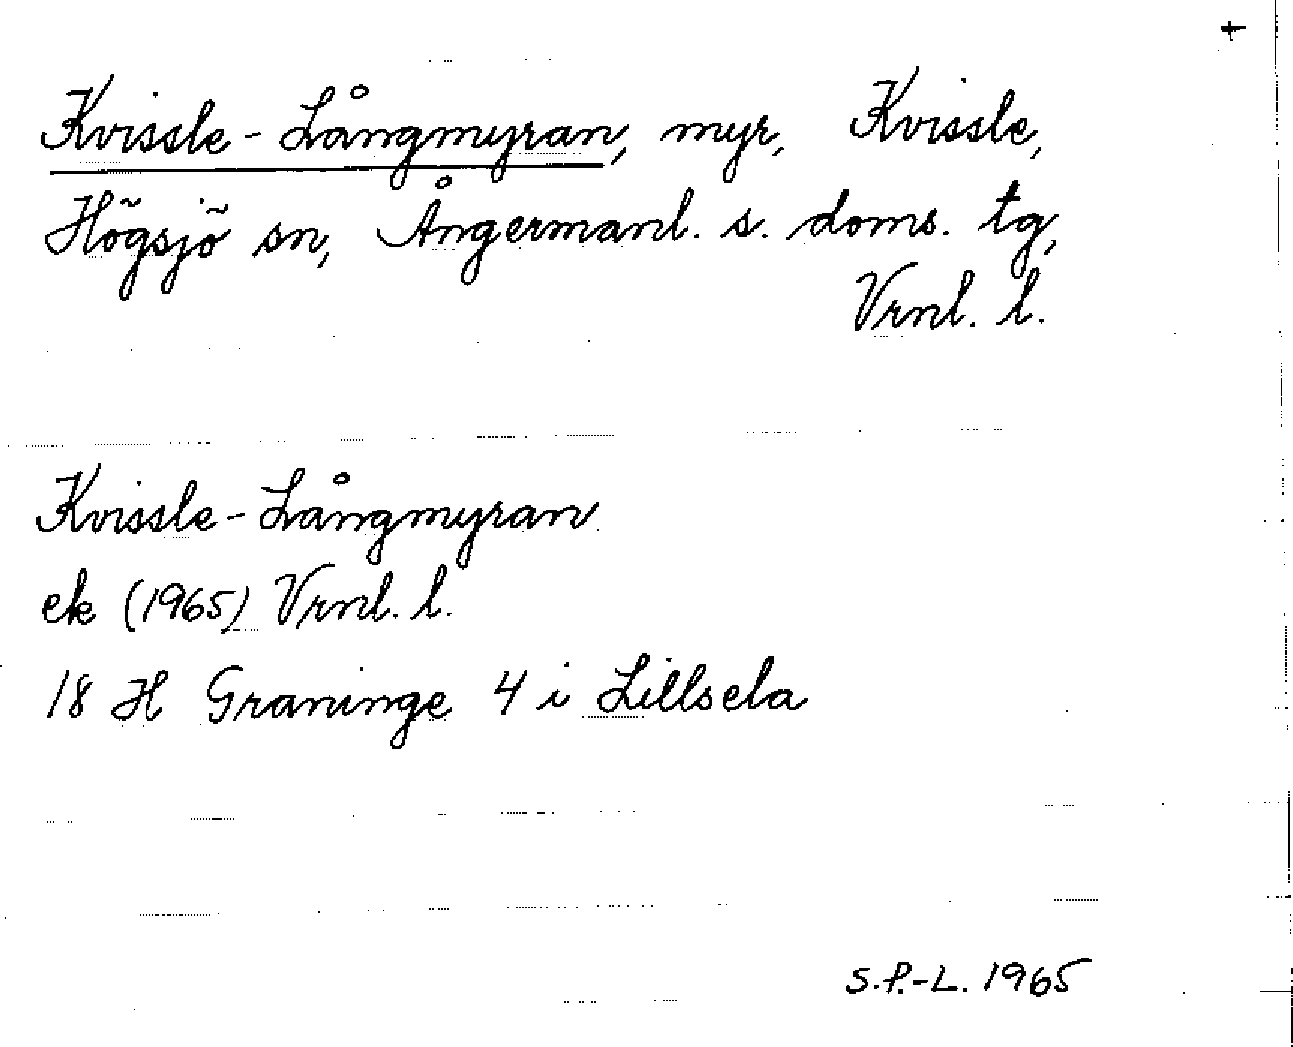 Kvissle-Långmyran, myr, Kvissle,
Högsjö sn, Ångermanl. s. doms. tg,
Vrnl. l.
Kvissle-Långmyran
ek (1965) Vrnl. l.
18 H Graninge 4 i Lillsela
S.P.-L. 1965